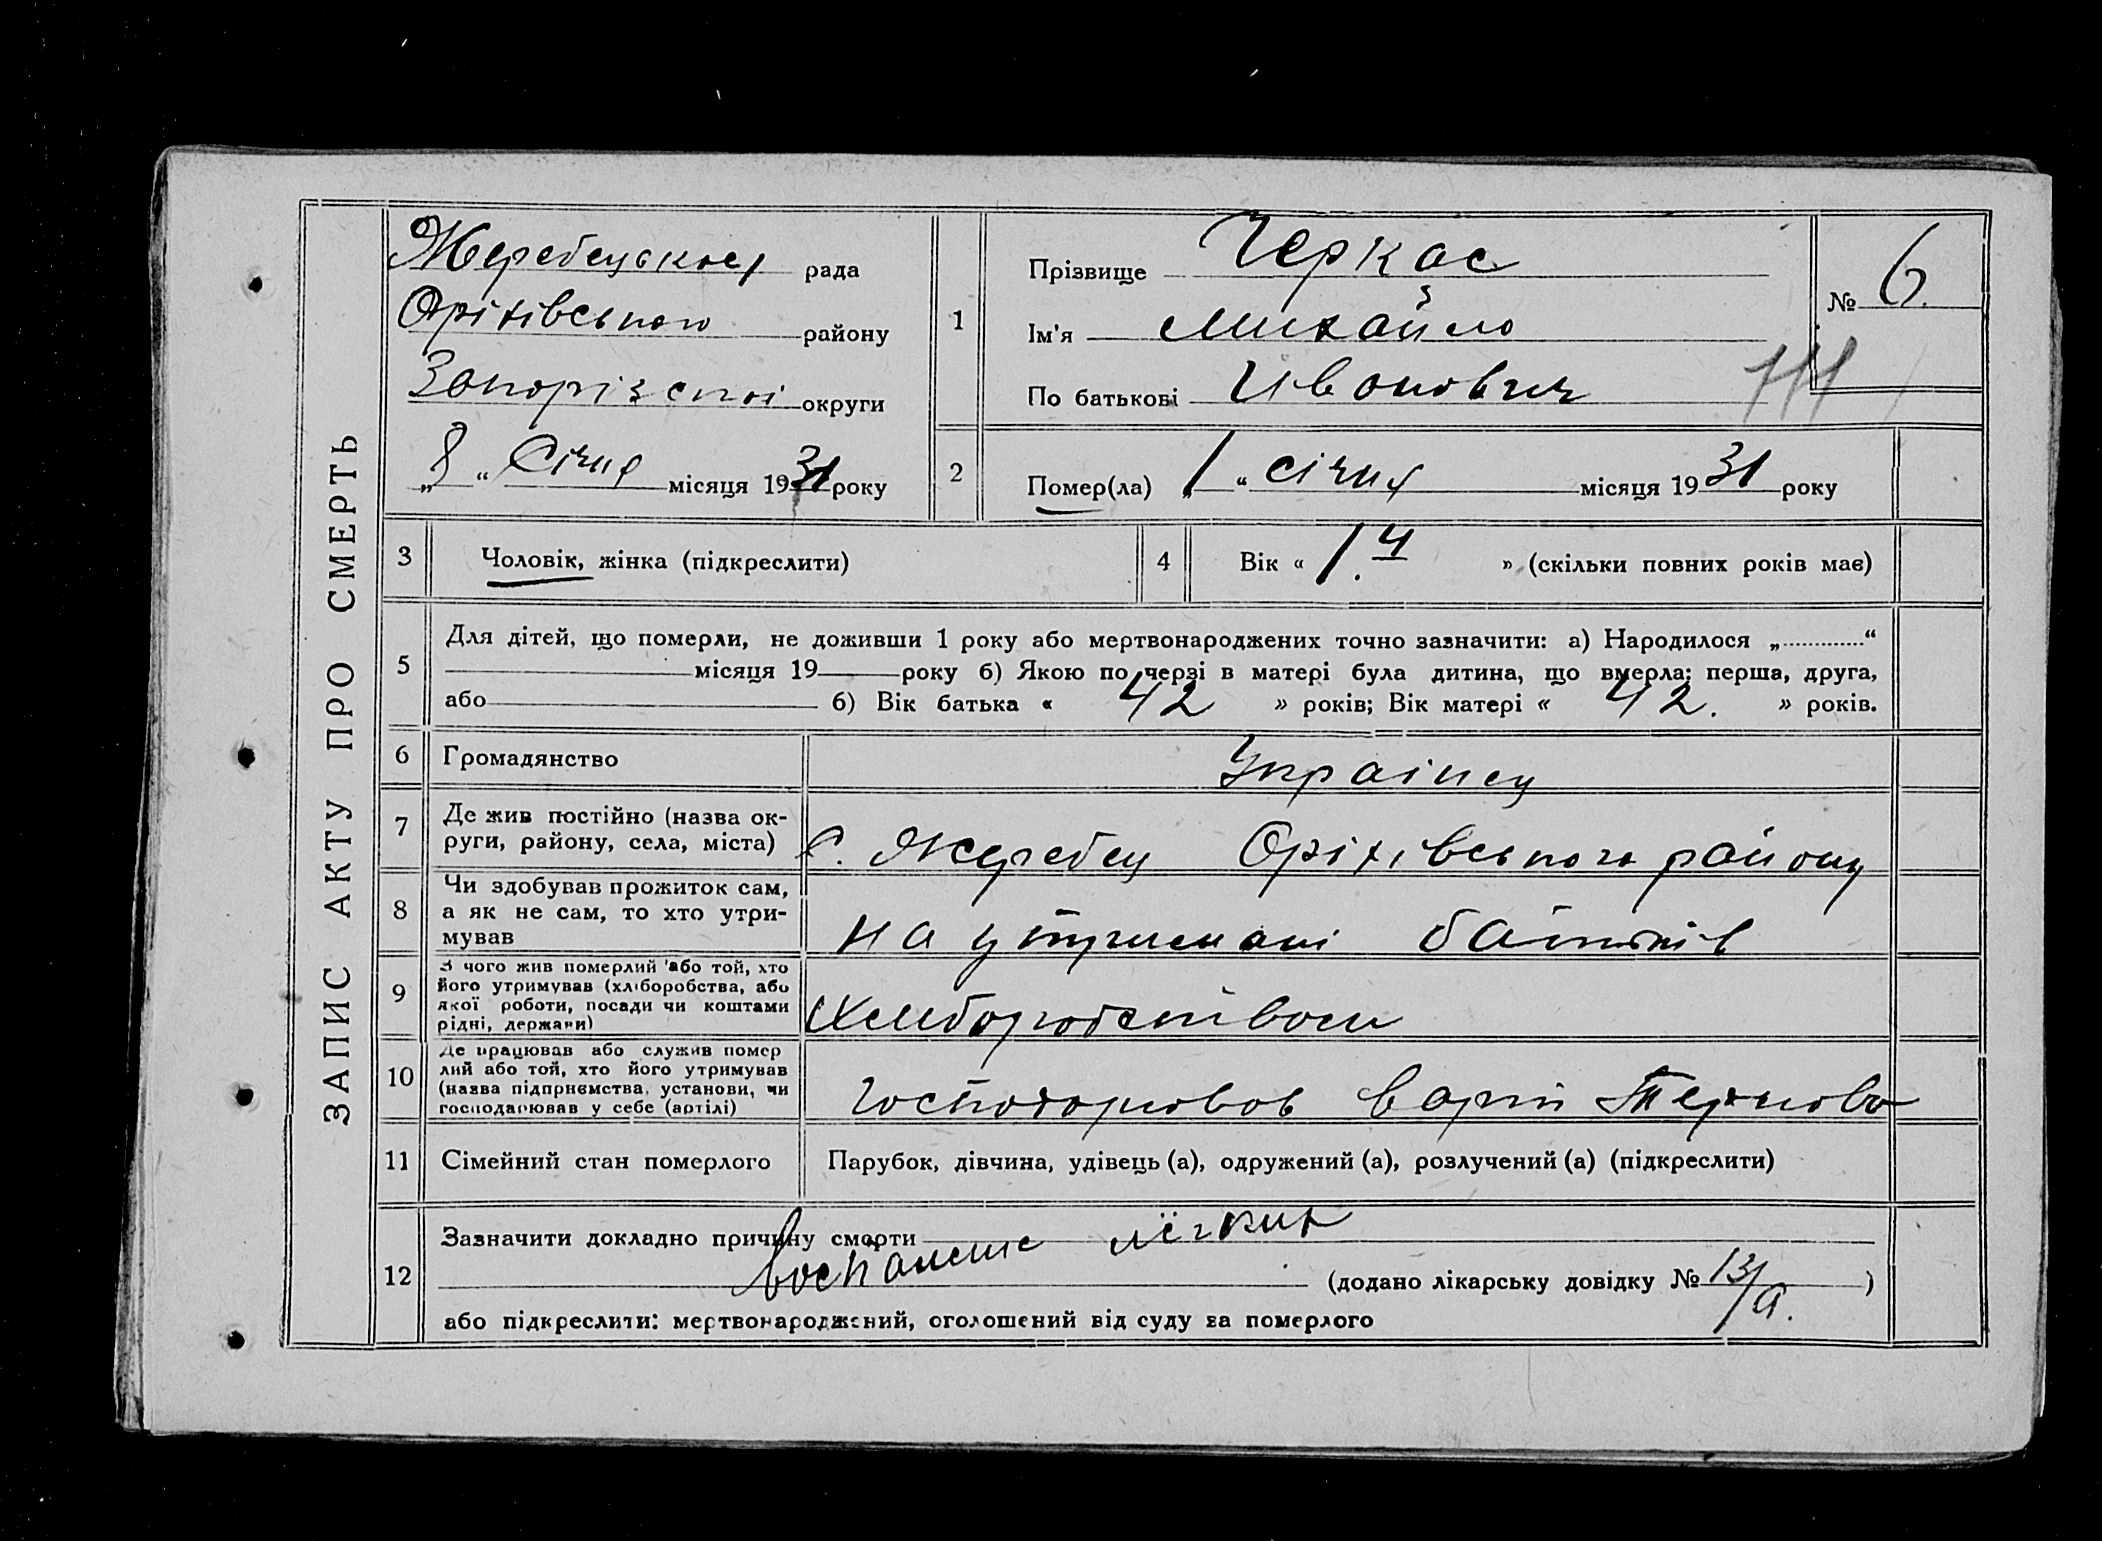 ЗАПИС АКТУ ПРО СМЕРТЬ
Жеребецької рада
Оріхівського району
Запорізської округи
„ 8 “ Січня місяця 1931 року
1
Прізвище Черкас
Ім'я Михайло
По батькові Иванович
№ 6
2
Помер(ла) „ 1 “ січня місяця 1931 року
3 Чоловік, жінка (підкреслити)
4 Вік « 1. ч » (скільки повних років має)
5
Для дітей, що померли, не доживши 1 року або мертвонароджених точно зазначити: а) Народилося „ “
місяця 19 року б) Якою по черзі в матері була дитина, що вмерла: перша, друга,
або б) Вік батька « 42 » років; Вік матері « 42. » років.
6 Громадянство Украінец
7 Де жив постійно (назва ок-
руги, району, села, міста)
С. Жеребец Оріхівського району
8 Чи здобував прожиток сам,
а як не сам, то хто утри-
мував
на утримані батьків
9 З чого жив померлий або той, хто
його утримував (хліборобства, або
якої роботи, посади чи коштами
рідні, держави)
Хлиборобством
10 Де працював або служив помер
лий або той, хто його утримував
(назва підприємства, установи, чи
господарював у себе (артілі)
господарював варті
11 Сімейний стан померлого Парубок, дівчина, удівець (а), одружений (а), розлучений (а) (підкреслити)
12
Зазначити докладно причину смерти
воспаление лёгких
(додано лікарську довідку № 13/а. )
або підкреслити: мертвонароджений, оголошений від суду за померлого